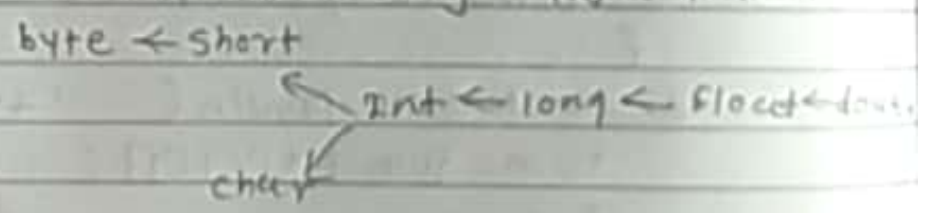 byte ← short
Int ← long ← float ←
char